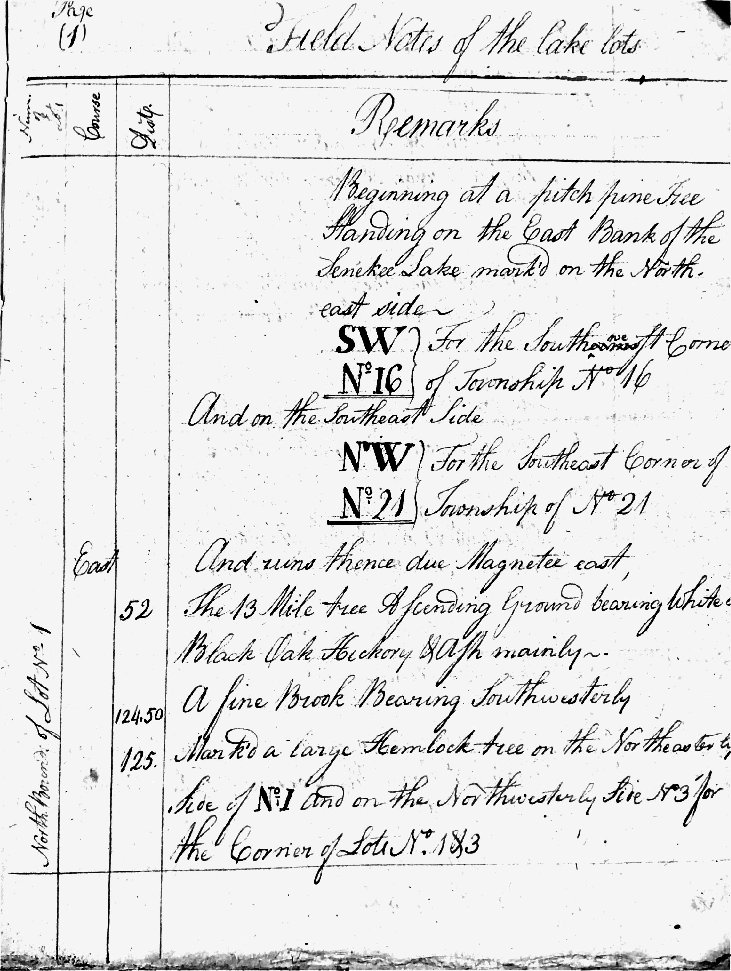 Page
(1)
Field Notes of the Lake lots
Num. of Lots
Course
Dist.
Remarks
Beginning at a pitch pine Tree
Standing on the East Bank of the
Senekee Lake mark'd on the North-
east side~
SW } For the South we st Corne
No. 16 } of Township No 16
And on the Southeast Side
NW } For the Southeast Corner of
No. 21 } Township of No 21
East And runs thence due Magnetee east,
52 The 13 Mile tree Ascending Ground bearing White
Black Oak Hickory & Ash mainly~.
124.50 A fine Brook Bearing Southwesterly
125. Mark'd a large Hemlock tree on the Northeasterly
Side of No. 1 and on the Northwesterly Side No 3 for
the Corner of Lots No. 1&3
North Bound. of Lot No 1